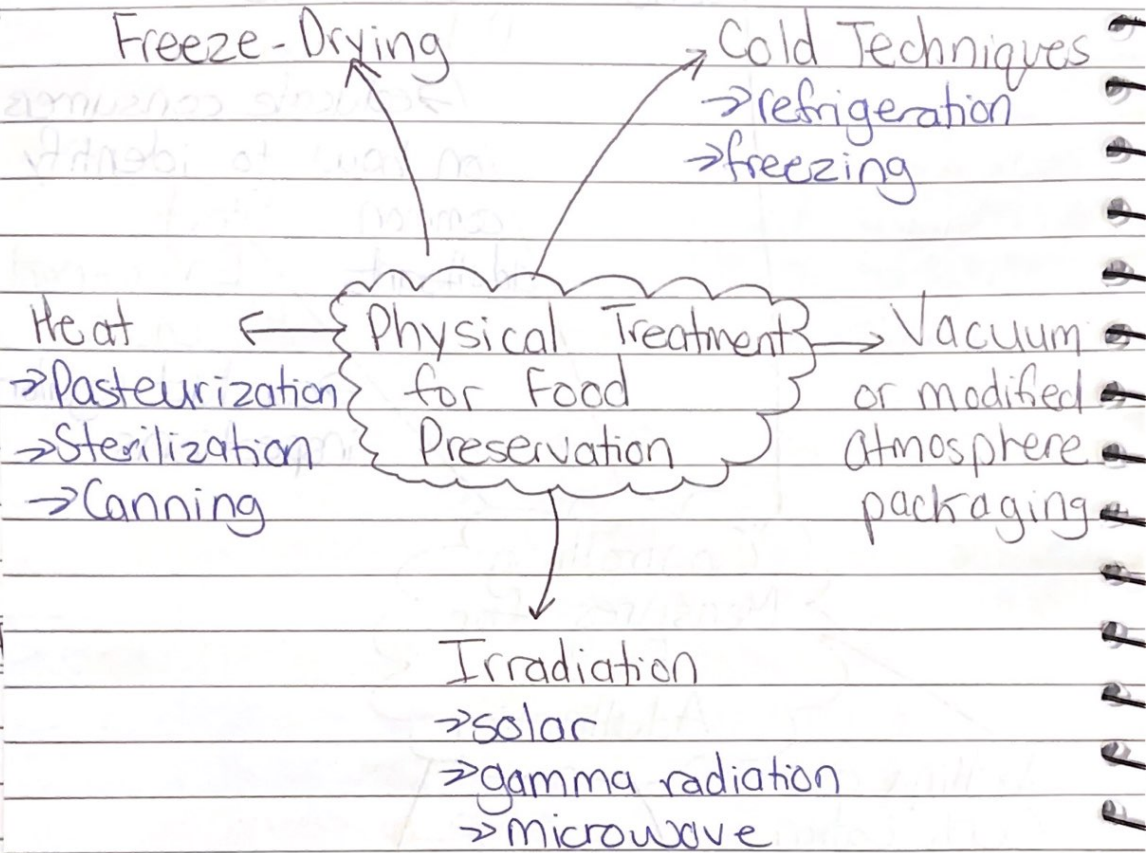 Freeze-Drying
Cold Techniques
→refrigeration
→freezing
Heat
→Pasteurization
→Sterilization
→Canning
Physical Treatment
for Food
Preservation
Vacuum
or modified
atmosphere
packaging
Irradiation
→solar
→gamma radiation
→microwave